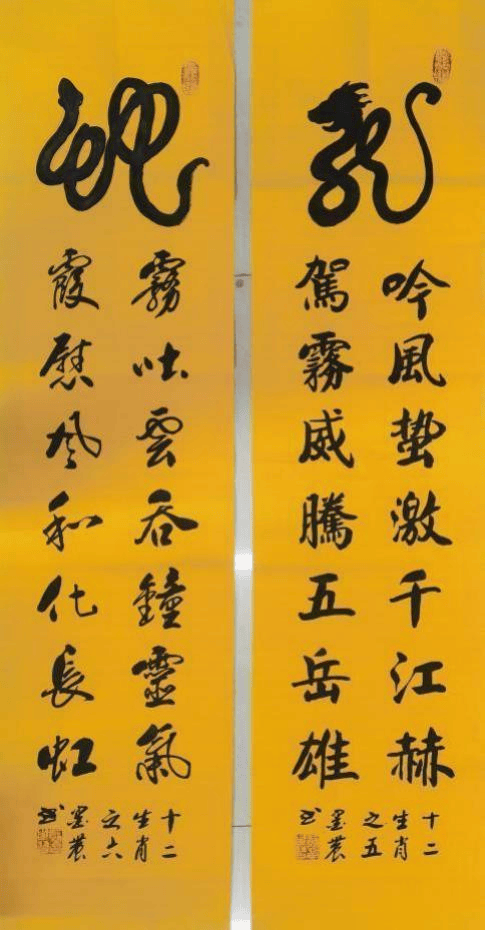 龍
吟風蛰激千江赫
駕霧威騰五岳雄
十二
生肖
之五
墨農
书
蛇
霧吐雲吞鐘靈氣
霞慰风和化長虹
十二
生肖
之六
墨農
书